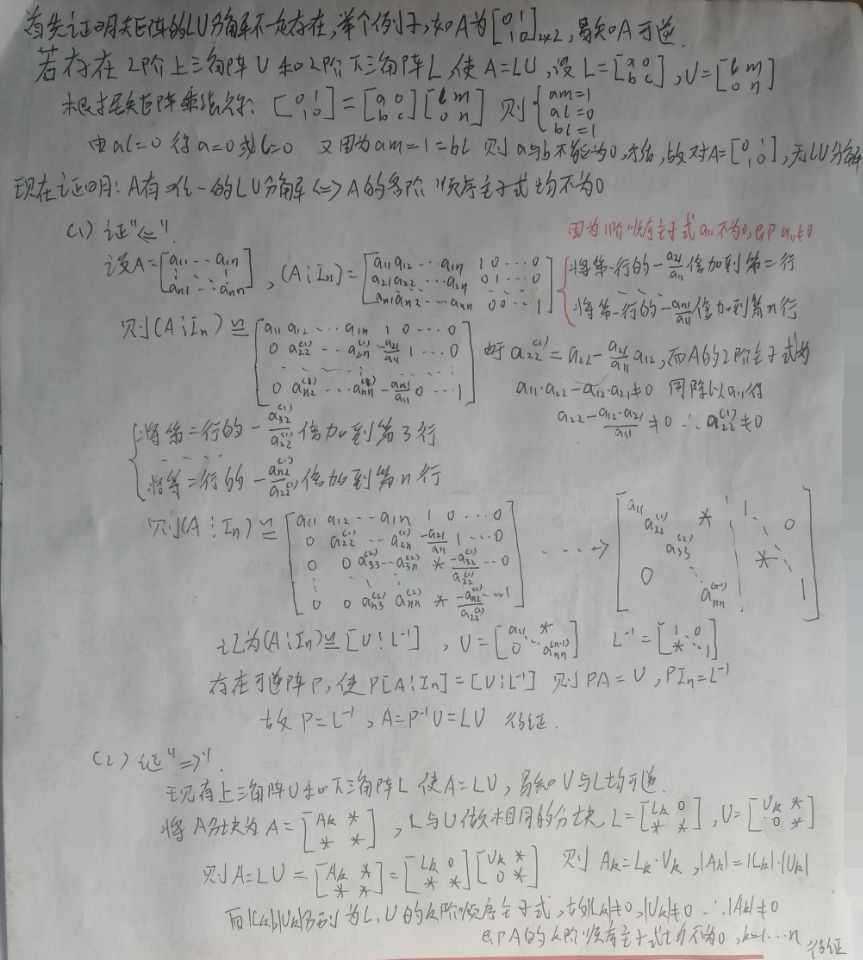 首先证明矩阵的LU分解不一定存在,举个例子,如A为[0 1; 1 0]₂ₓ₂,易知A可逆.
若存在2阶上三角阵U和2阶下三角阵L,使A=LU,设L=[a 0; b c],U=[l m; 0 n]
根据矩阵乘法得:[0 1; 1 0]=[a 0; b c][l m; 0 n] 则{am=1 al=0 bl=1
由al=0得a=0或l=0 又因为am=1=bl 则a与b不能为0,矛盾,故对A=[0 1; 1 0],无LU分解
现在证明:A有唯一的LU分解⟺A的各阶顺序主子式均不为0
(1) 证"⇐".
因为1阶顺序主子式a₁₁不为0,即a₁₁≠0
设A=[a₁₁ ⋯ a₁ₙ; ⋮ ⋱ ⋮; aₙ₁ ⋯ aₙₙ],(A⋮Iₙ)=[a₁₁ a₁₂ ⋯ a₁ₙ 1 0 ⋯ 0; a₂₁ a₂₂ ⋯ a₂ₙ 0 1 ⋯ 0; aₙ₁ aₙ₂ ⋯ aₙₙ 0 0 ⋯ 1]
{将第一行的-a₂₁/a₁₁倍加到第二行
将第一行的-aₙ₁/a₁₁倍加到第n行
则(A⋮Iₙ)≅[a₁₁ a₁₂ ⋯ a₁ₙ 1 0 ⋯ 0; 0 a₂₂⁽¹⁾ ⋯ a₂ₙ⁽¹⁾ -a₂₁/a₁₁ 1 ⋯ 0; 0 aₙ₂⁽¹⁾ ⋯ aₙₙ⁽¹⁾ -aₙ₁/a₁₁ 0 ⋯ 1]
由于a₂₂⁽¹⁾=a₂₂-a₂₁/a₁₁a₁₂,而A的2阶主子式为
a₁₁·a₂₂-a₁₂·a₂₁≠0 同除以a₁₁得
a₂₂-a₁₂·a₂₁/a₁₁≠0 ∴a₂₂⁽¹⁾≠0
{将第二行的-a₃₂⁽¹⁾/a₂₂⁽¹⁾倍加到第3行
将第二行的-aₙ₂⁽¹⁾/a₂₂⁽¹⁾倍加到第n行
则(A⋮Iₙ)≅[a₁₁ a₁₂ ⋯ a₁ₙ 1 0 ⋯ 0; 0 a₂₂⁽¹⁾ ⋯ a₂ₙ⁽¹⁾ -a₂₁/a₁₁ 1 ⋯ 0; 0 0 a₃₃⁽²⁾ ⋯ a₃ₙ⁽²⁾ * -a₃₂⁽¹⁾/a₂₂⁽¹⁾ ⋯ 0; 0 0 aₙ₃⁽²⁾ aₙₙ⁽²⁾ * -aₙ₂⁽¹⁾/a₂₂⁽¹⁾ ⋯ 1] ⋯→ [a₁₁ a₂₂⁽¹⁾ a₃₃⁽²⁾ ⋱ aₙₙ⁽ⁿ⁻¹⁾ * 0 ⋮ 1 ⋱ 1 * 0]
记为(A⋮Iₙ)≅[U⋮L⁻¹],U=[a₁₁ *; 0 ⋱ aₙₙ⁽ⁿ⁻¹⁾] L⁻¹=[1 0; * ⋱ 1]
存在可逆阵P,使P[A⋮Iₙ]=[U⋮L⁻¹] 则PA=U,PIₙ=L⁻¹
故P=L⁻¹,A=P⁻¹U=LU 得证.
(2) 证"⇒".
现有上三角阵U和下三角阵L使A=LU,易知U与L均可逆.
将A分块为A=[Aₖ *; * *],L与U做相同的分块,L=[Lₖ 0; * *],U=[Uₖ *; 0 *]
则A=LU=[Aₖ *; * *]=[Lₖ 0; * *][Uₖ *; 0 *] 则Aₖ=Lₖ·Uₖ,|Aₖ|=|Lₖ|·|Uₖ|
而|Lₖ|,|Uₖ|分别为L,U的k阶顺序主子式,故|Lₖ|≠0,|Uₖ|≠0 ∴|Aₖ|≠0
即A的k阶顺序主子式均不为0,k=1⋯n 得证